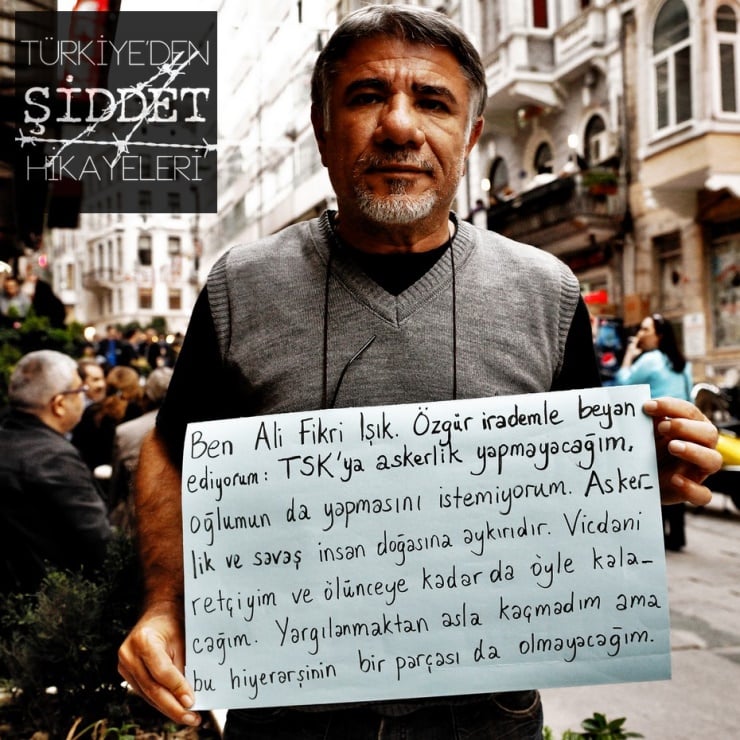 TÜRKİYE'DEN
ŞİDDET
HİKAYELERİ
Ben Ali Fikri Işık. Özgür irademle beyan
ediyorum: TSK'ya askerlik yapmayacağım,
oğlumun da yapmasını istemiyorum. Asker-
lik ve savaş insan doğasına aykırıdır. Vicdani
retçiyim ve ölünceye kadar da öyle kala-
cağım. Yargılanmaktan asla kaçmadım ama
bu hiyerarşinin bir parçası da olmayacağım.